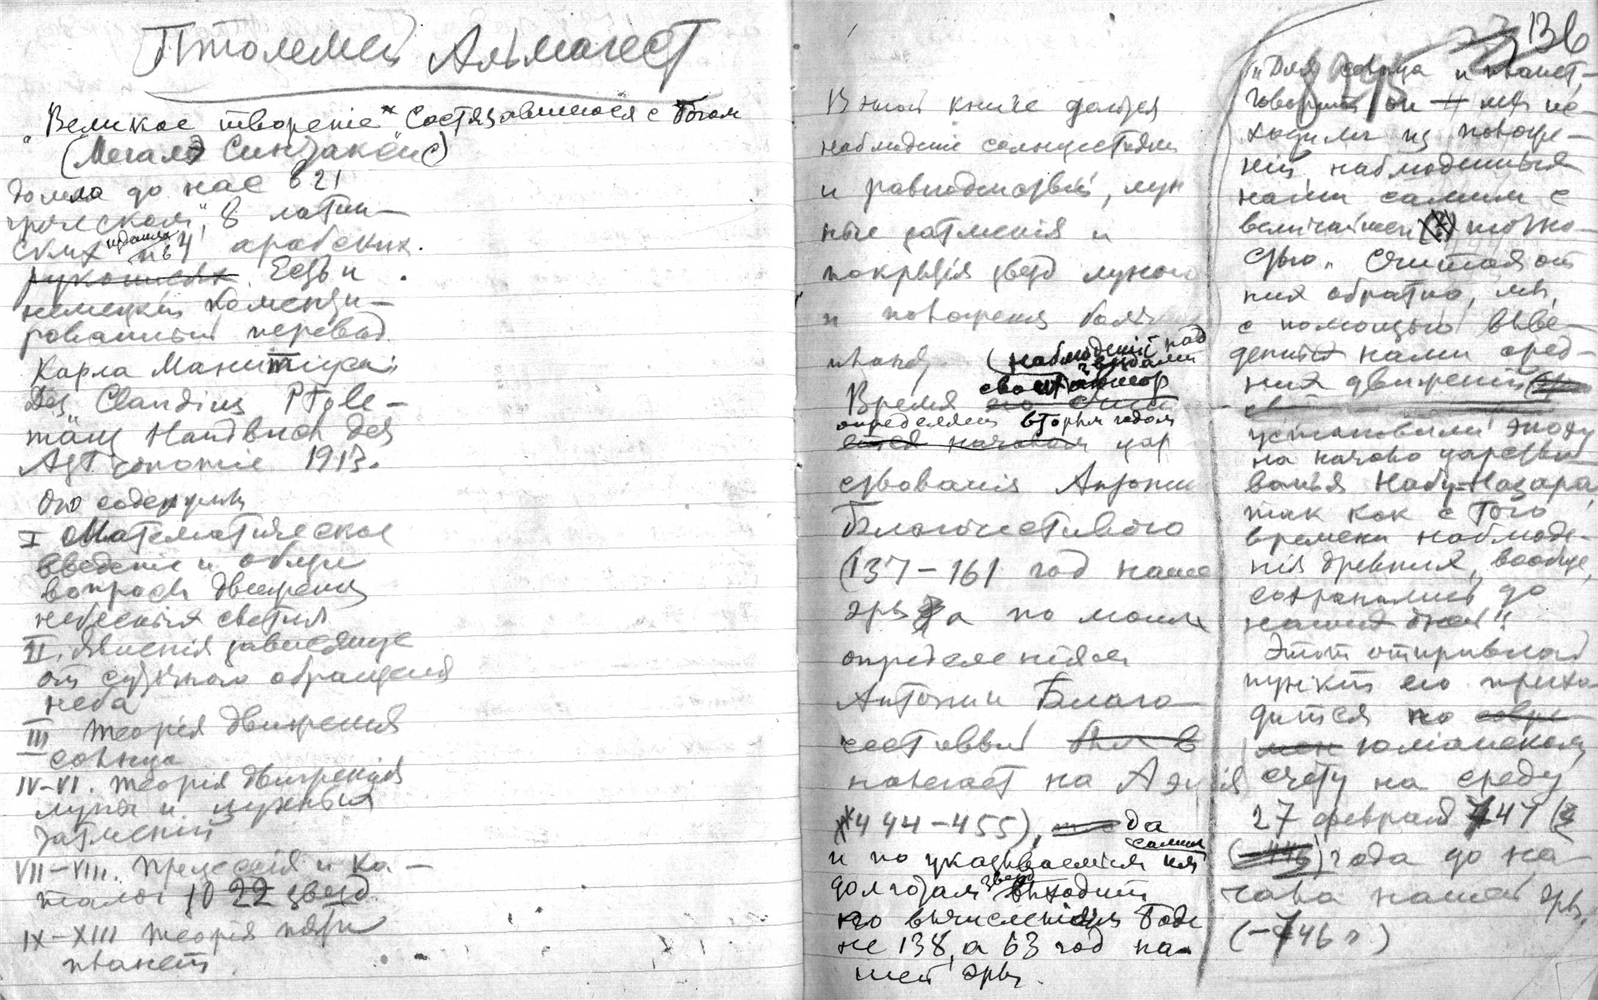 Птолемей Альмагест
"Великое творенiе" Состязавшагося с Богом
(Мегалэ Синтаксис)
дошло до нас в 21
греческом, 8 латин-
ских и 4 арабских
рукописях Есть и
немецкiй коменти-
рованный перевод
Карла Манитиуса:
Des Claudius Ptole-
mäus Handbuch der
Astronomie 1913.
Его содержание
I Математическое
введенiе и общие
вопросы движения
небесных светил
II. Явленiя зависящие
от суточного обращения
неба
III Теорiя движения
солнца
IV-VI. Теорiя движения
луны и лунных
затменiй
VII-VIII. Прецессiя и ка-
талог 1022 звезд
IX-XIII Теорiя пяти
планет.
136
В этой книге даются
наблюденiе солнцестоянiй
и равноденствий, лун
ные затменiя и
покрытiя звезд луною
и положения
планет. (наблюденiй над
звездами
Время своих
определяет вторым годом
цар
ствованiя Антонина
Благочестивого
(137-161 год нашей
эры, а по моим
определенiям
Антонин Благо
честивый был в
на Аэцiя
444-455), да
и по указываемым им самим
долготам звезд выходит
по вычисленiям Боде
не 138, а 63 год на-
шей эры.
"Для солнца и планет,-
говорит он - мы ис-
ходили из положе-
нiй, наблюденных
нами самими с
величайшей точно-
стью. Считая от
них обратно, мы,
с помощью выве-
денных нами сред-
них движенiй
установили эпоху
на начало царство-
ванья Набу-Назара,
так как с того
времени наблюде-
нiя древних, вообще,
сохранились до
наших дней".
Этот отправной
пункт его прихо-
дится по
юлiанскому
счету на среду
27 февраля 747
года до на-
чала нашей эры.
(-746 г)